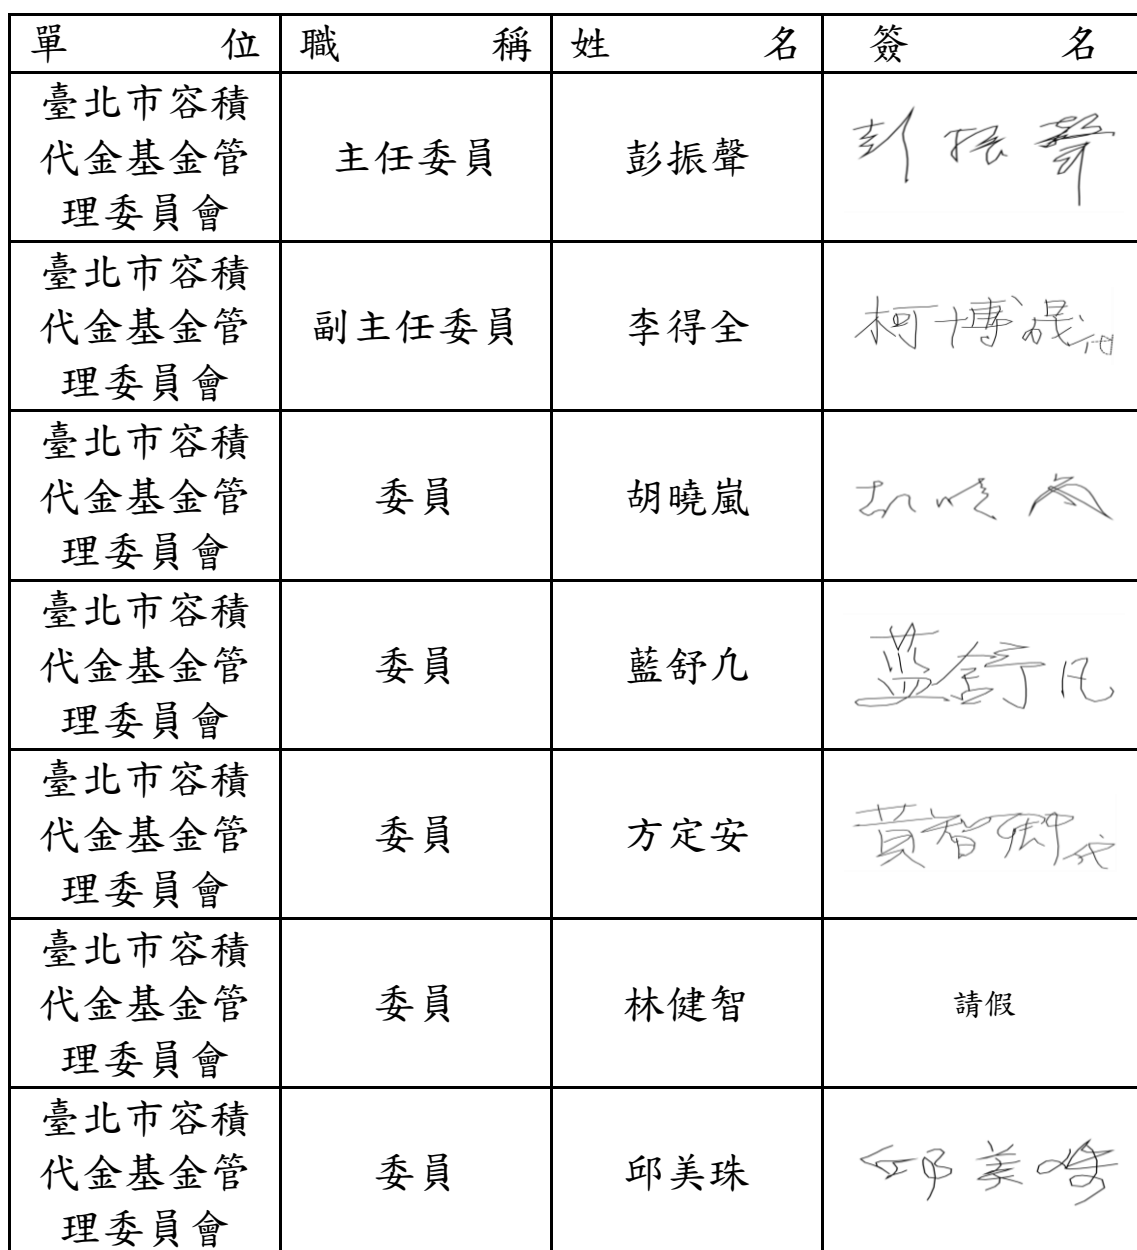 單位 職稱 姓名 簽名
臺北市容積
代金基金管
理委員會
主任委員
彭振聲
彭振聲
臺北市容積
代金基金管
理委員會
副主任委員
李得全
柯博晟代
臺北市容積
代金基金管
理委員會
委員
胡曉嵐
胡曉嵐
臺北市容積
代金基金管
理委員會
委員
藍舒凢
藍舒凡
臺北市容積
代金基金管
理委員會
委員
方定安
黃智卿代
臺北市容積
代金基金管
理委員會
委員
林健智
請假
臺北市容積
代金基金管
理委員會
委員
邱美珠
邱美珠